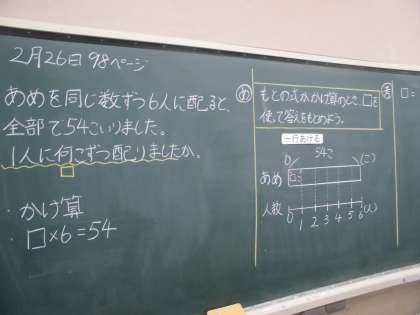 2月26日 98ページ
あめを同じ数ずつ6人に配ると、
全部で54こいりました。
1人に何こずつ配りましたか。
□
・かけ算
・□×6=54
め
もとの式がかけ算のとき、□を
使って答えをもとめよう。
一行あける
0 54こ (こ)
あめ □こ
人数
0 1 2 3 4 5 6(人)
答
□=